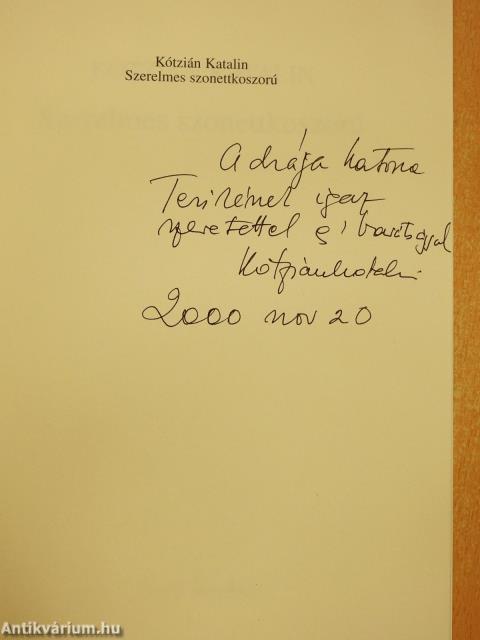 Kótzián Katalin
Szerelmes szonettkoszorú
A drága Katona
Terikének igaz
szeretettel és barátsággal
Kótzián Katalin
2000 nov 20
Antikvárium.hu